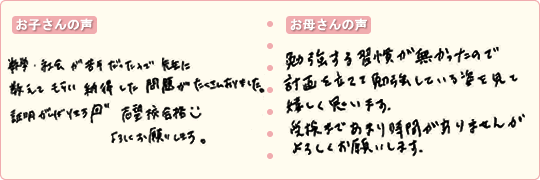 お子さんの声
数学・社会が苦手だったので先生に
教えてもらい納得した問題がたくさんありました。
証明がんばります 志望校合格
よろしくお願いします。
お母さんの声
勉強する習慣が無かったので
計画を立てて勉強している姿を見て
嬉しく思います。
受検まであまり時間がありませんが
よろしくお願いします。